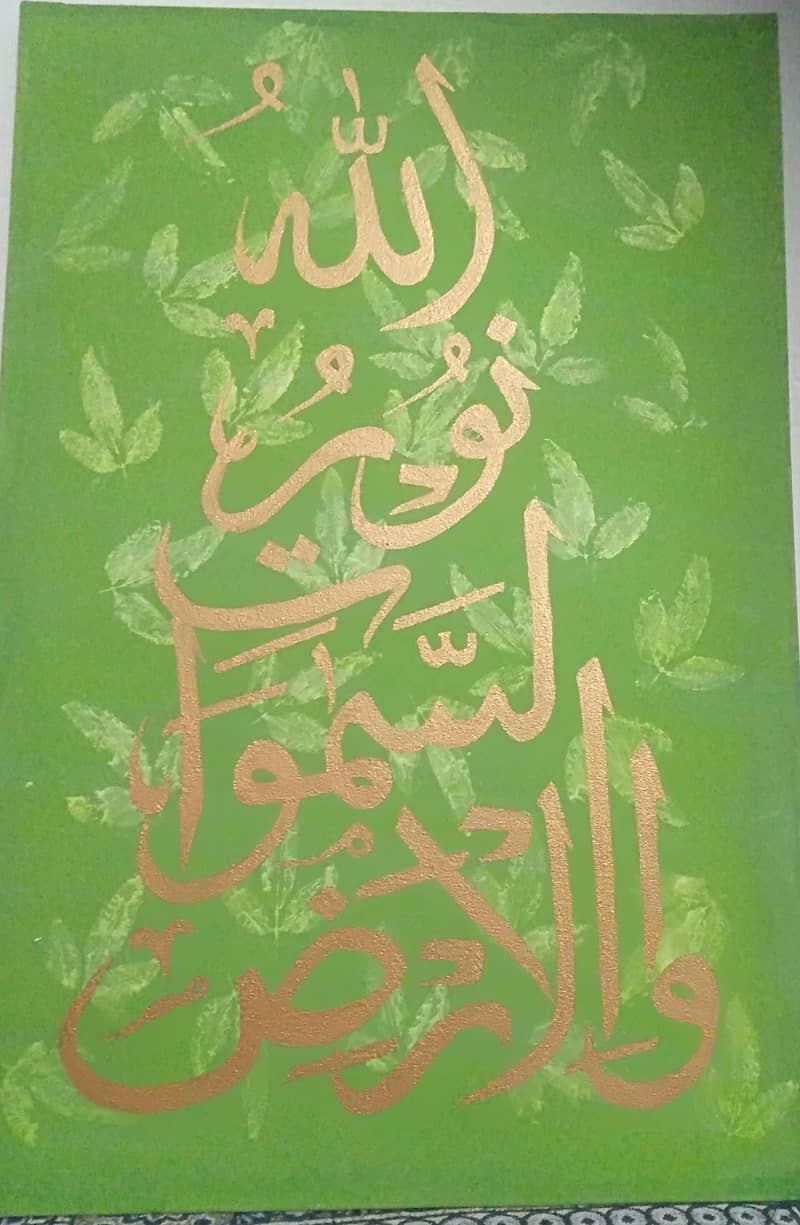 اللّٰهُ
نُورُ
السَّمٰوَاتِ
وَالْاَرْضِ